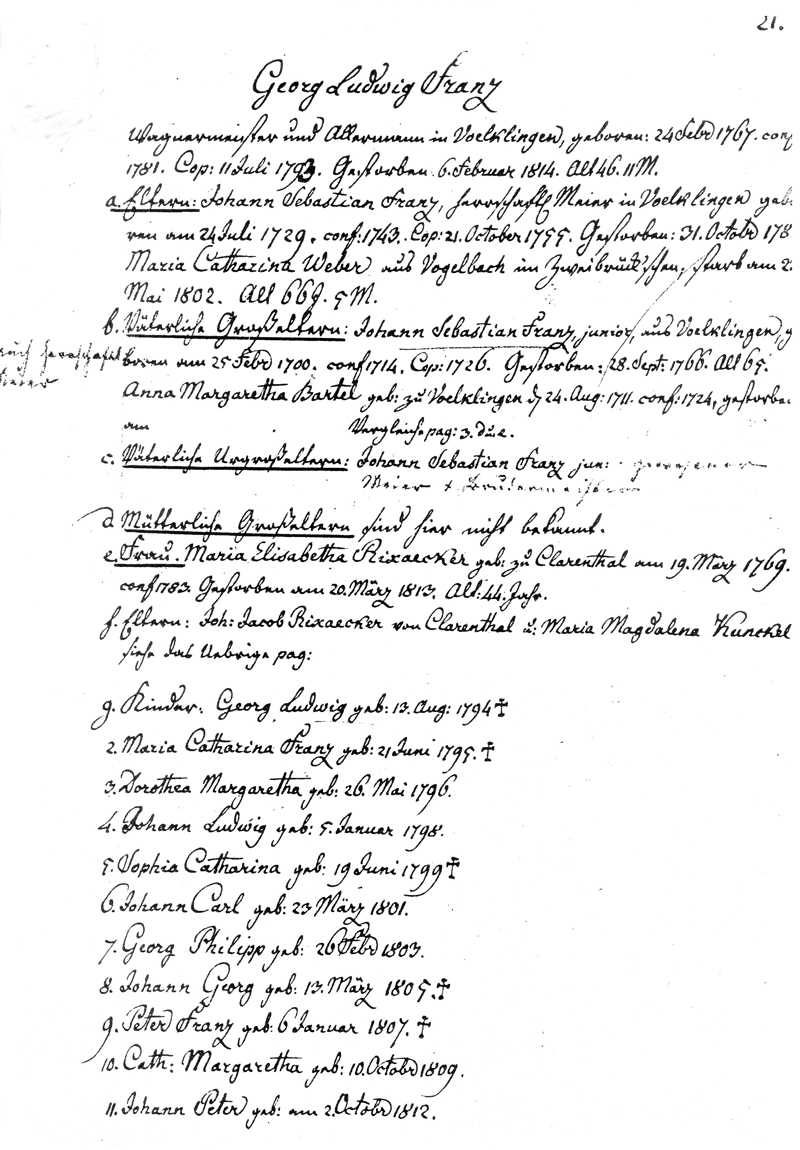 21.
Georg Ludwig Franz
Wagnermeister und Ackermann in Voelklingen, geboren: 24 Febr 1767. conf
1781. Cop: 11 Juli 1793. Gestorben 6. Februar 1814. Alt 46. 11 M.
a. Eltern: Johann Sebastian Franz, herrschaftl Meier in Voelklingen gebo
ren am 24 Juli 1729. conf: 1743. Cop: 21. October 1755. Gestorben: 31. Octobr 178
Maria Catharina Weber aus Vogelbach im Zweibrück'schen, starb am 2
Mai 1802. Alt 66 J. 5 M.
b. Väterliche Großeltern: Johann Sebastian Franz, junior, aus Voelklingen, g
auch herrschaftl
Meier
boren am 25 Febr 1700. conf 1714. Cop: 1726. Gestorben: 28. Sept: 1766. Alt 65.
Anna Margaretha Bartel geb: zu Voelklingen d 24. Aug: 1711. conf: 1724, gestorbe
am Vergleiche pag: 3. d u. e.
c. Väterliche Urgroßeltern: Johann Sebastian Franz jun: gewesener
Meier
d Mütterliche Großeltern sind hier nicht bekannt.
e. Frau. Maria Elisabetha Rixaecker geb: zu Clarenthal am 19. März 1769.
conf 1783. Gestorben am 20. März 1813. Alt: 44. Jahr.
f. Eltern: Joh: Jacob Rixaecker von Clarenthal u: Maria Magdalena Kunckel
siehe das Uebrige pag:
g. Kinder: Georg Ludwig geb: 13. Aug: 1794 ‡
2. Maria Catharina Franz geb: 21 Juni 1795. ‡
3. Dorothea Margaretha geb: 26. Mai 1796.
4. Johann Ludwig geb: 5. Januar 1798.
5. Sophia Catharina geb: 19 Juni 1799 ‡
6. Johann Carl geb: 23 März 1801.
7. Georg Philipp geb: 26 Febr 1803.
8. Johann Georg geb: 13. März 1805. ‡
9. Peter Franz geb: 6 Januar 1807. ‡
10. Cath: Margaretha geb: 10. Octobr 1809.
11. Johann Peter geb: am 2. Octobr 1812.